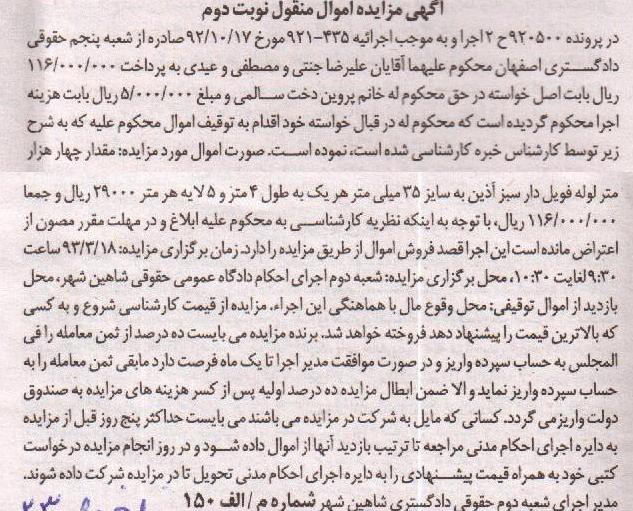 آگهی مزایده اموال منقول نوبت دوم
در پرونده ۹۲۰۵۰۰ح ۲ اجرا و به موجب اجرائیه ۴۳۵-۹۲۱ مورخ ۹۲/۱۰/۱۷ صادره از شعبه پنجم حقوقی
دادگستری اصفهان محکوم علیهما آقایان علیرضا جنتی و مصطفی و عیدی به پرداخت ۱۱۶/۰۰۰/۰۰۰
ریال بابت اصل خواسته در حق محکوم له خانم پروین دخت سالمی و مبلغ ۵/۰۰۰/۰۰۰ ریال بابت هزینه
اجرا محکوم گردیده است که محکوم له در قبال خواسته خود اقدام به توقیف اموال محکوم علیه که به شرح
زیر توسط کارشناس خبره کارشناسی شده است، نموده است. صورت اموال مورد مزایده: مقدار چهار هزار
متر لوله فویل دار سبز آذین به سایز ۳۵ میلی متر هر یک به طول ۴ متر و ۵ لایه هر متر ۲۹۰۰۰ ریال و جمعا
۱۱۶/۰۰۰/۰۰۰ ریال، با توجه به اینکه نظریه کارشناسی به محکوم علیه ابلاغ و در مهلت مقرر مصون از
اعتراض مانده است این اجرا قصد فروش اموال از طریق مزایده را دارد. زمان برگزاری مزایده: ۹۳/۳/۱۸ ساعت
۹:۳۰ لغایت ۱۰:۳۰، محل برگزاری مزایده: شعبه دوم اجرای احکام دادگاه عمومی حقوقی شاهین شهر، محل
بازدید از اموال توقیفی: محل وقوع مال با هماهنگی این اجراء. مزایده از قیمت کارشناسی شروع و به کسی
که بالاترین قیمت را پیشنهاد دهد فروخته خواهد شد. برنده مزایده می بایست ده درصد از ثمن معامله را فی
المجلس به حساب سپرده واریز و در صورت موافقت مدیر اجرا تا یک ماه فرصت دارد مابقی ثمن معامله را به
حساب سپرده واریز نماید و الا ضمن ابطال مزایده ده درصد اولیه پس از کسر هزینه های مزایده به صندوق
دولت واریز می گردد. کسانی که مایل به شرکت در مزایده می باشند می بایست حداکثر پنج روز قبل از مزایده
به دایره اجرای احکام مدنی مراجعه تا ترتیب بازدید آنها از اموال داده شود و در روز انجام مزایده درخواست
کتبی خود به همراه قیمت پیشنهادی را به دایره اجرای احکام مدنی تحویل تا در مزایده شرکت داده شوند.
مدیر اجرای شعبه دوم حقوقی دادگستری شاهین شهر شماره م / الف ۱۵۰